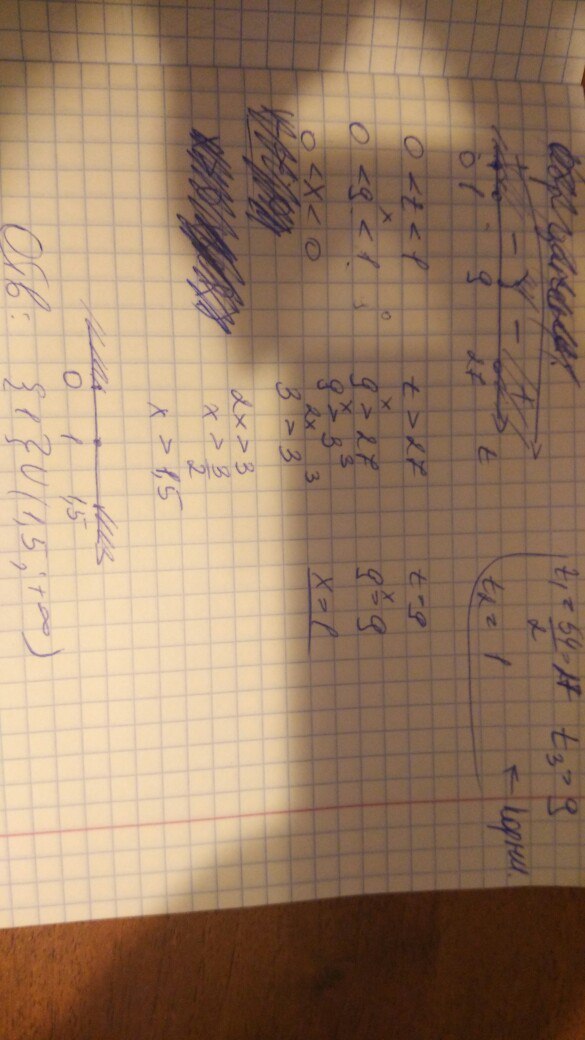 t₁ = 54/2 = 27 t₃ = 9
t₂ = 1 ← корни.
+ - - +
0 1 9 27 t
0 < t < 1 t > 27 t = 9
0 < 9ˣ < 1 9ˣ > 27 9ˣ = 9
0 < x < 0 9ˣ > 3³ x = 1
3²ˣ > 3³
2x > 3
x > 3/2
x > 1,5
0 1 1,5
Отв: {1} ∪ (1,5; +∞)